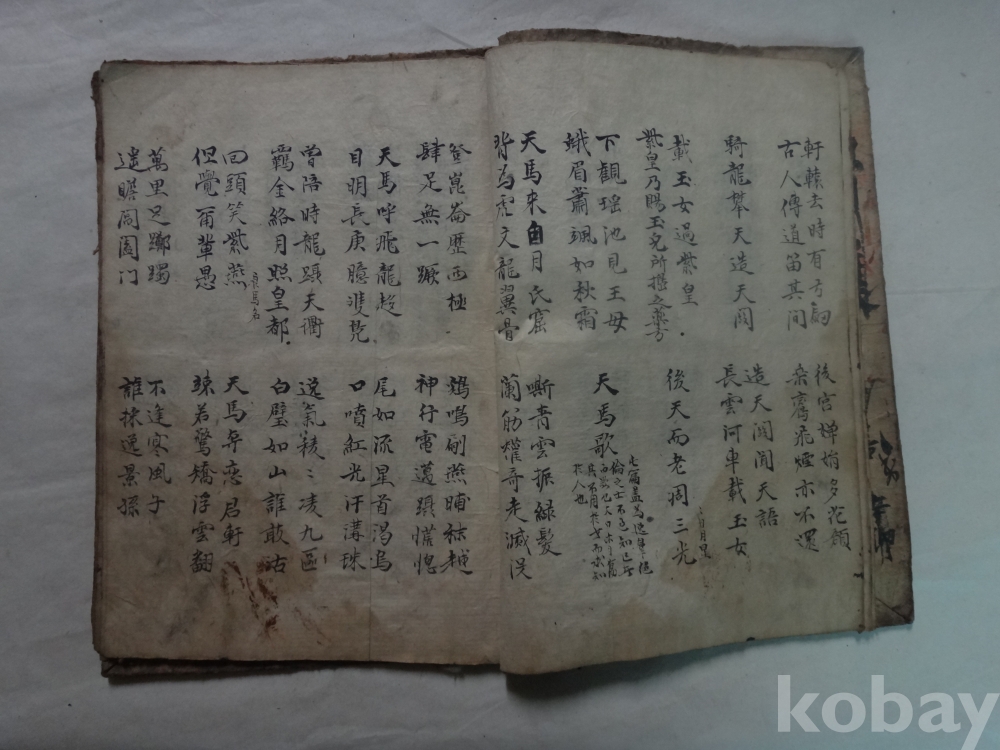 軒轅去時有弓劍
古人傳道笛其間
後宮嬋娟多花顔
乘鸞飛煙亦不還
騎龍攀天造天関
造天関聞天語
長雲河車載玉女
載玉女過紫皇
紫皇乃賜玉兔所擣之藥方
後天而老凋三光
下観瑶池見王母
蛾眉蕭颯如秋霜
天馬歌
天馬來自月氏窟
背為虎文龍翼骨
嘶青雲振綠髮
蘭筋權奇走滅没
登崑崙歷西極
肆足無一蹶
鷄鳴刷燕晡秣越
神行電邁躡慌惚
天馬呼飛龍趍
目明長庚臆雙鳧
尾如流星首渴烏
口噴紅光汗溝珠
曾陪時龍躡天衢
羈金絡月照皇都
逸氣稜〻凌九區
白璧如山誰敢沽
回頭笑紫燕
良馬名
但覺爾輩愚
天馬奔戀君軒
竦若驚矯浮雲翻
萬里足躑躅
遥瞻閶闔门
不逢寒風子
誰採逸景孫
kobay